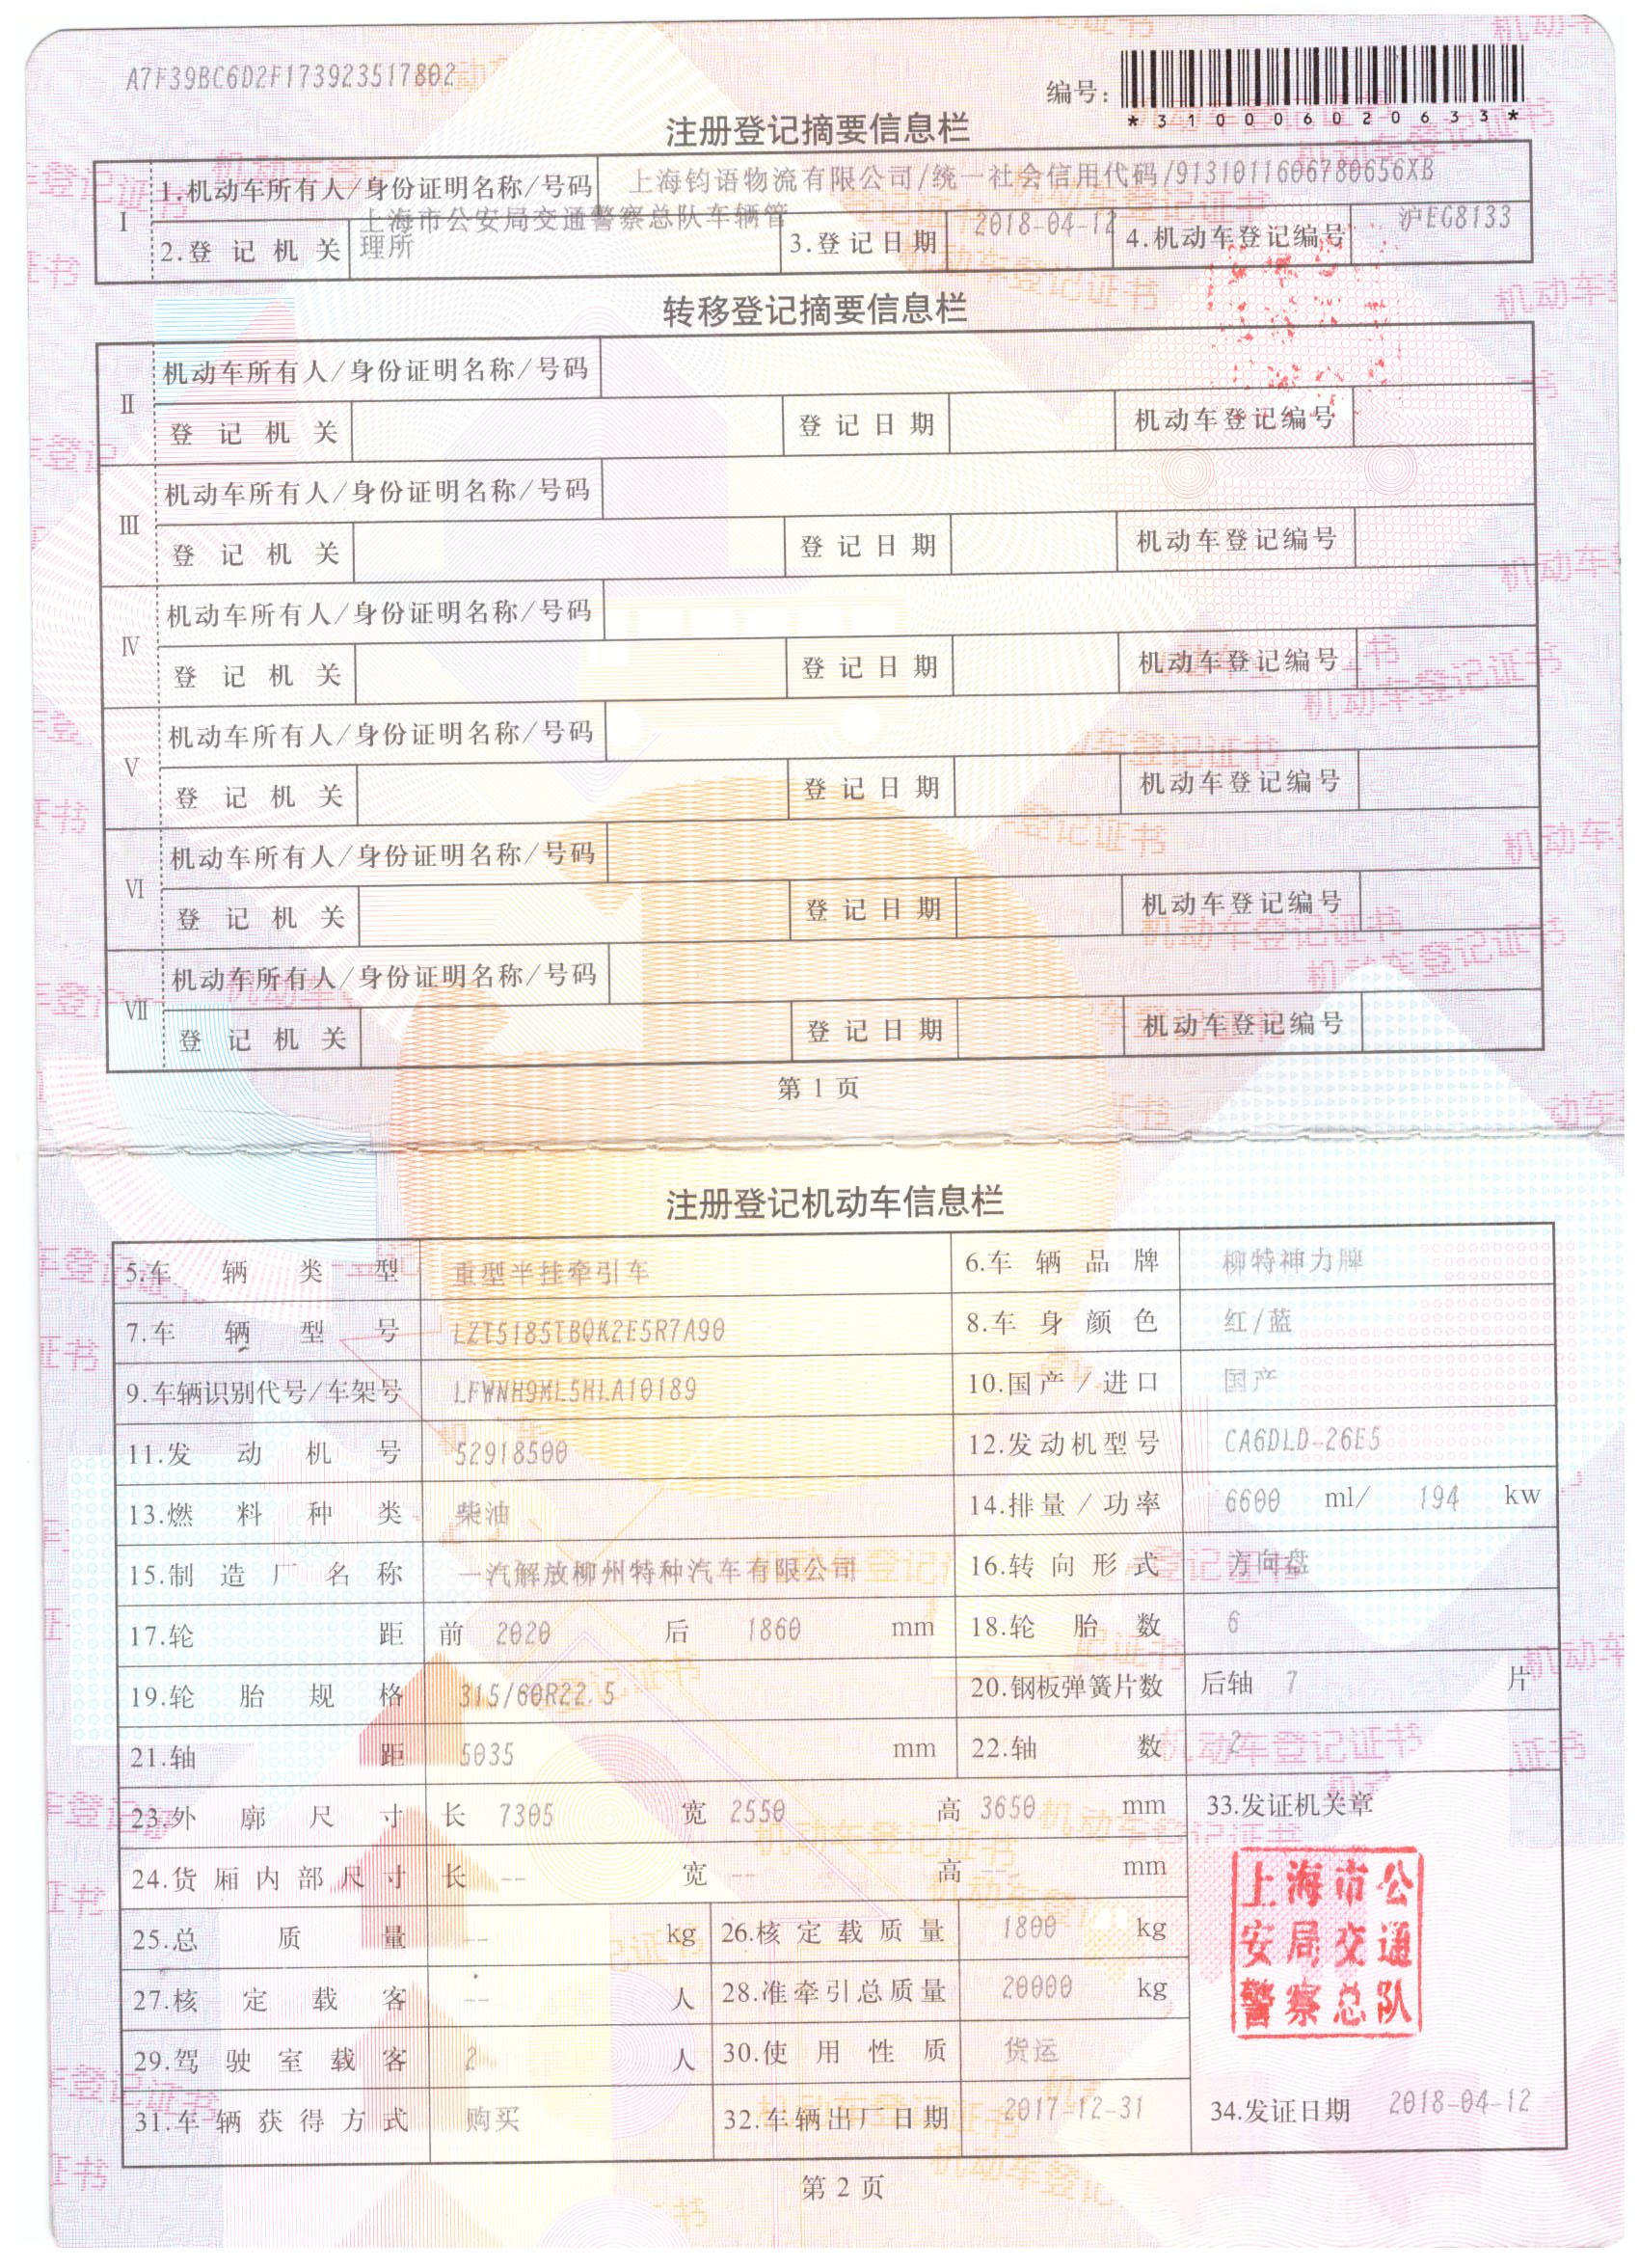 A7F39BC6D2F173923517802
编号：
*310006020633*
注册登记摘要信息栏
I
1.机动车所有人/身份证明名称/号码 上海钧语物流有限公司/统一社会信用代码/9131011606780656XB
2.登记机关 上海市公安局交通警察总队车辆管理所 3.登记日期 2018-04-12 4.机动车登记编号 沪EG8133
转移登记摘要信息栏
II
机动车所有人/身份证明名称/号码
登记机关 登记日期 机动车登记编号
III
机动车所有人/身份证明名称/号码
登记机关 登记日期 机动车登记编号
IV
机动车所有人/身份证明名称/号码
登记机关 登记日期 机动车登记编号
V
机动车所有人/身份证明名称/号码
登记机关 登记日期 机动车登记编号
VI
机动车所有人/身份证明名称/号码
登记机关 登记日期 机动车登记编号
VII
机动车所有人/身份证明名称/号码
登记机关 登记日期 机动车登记编号
第 1 页
注册登记机动车信息栏
5.车辆类型 重型半挂牵引车 6.车辆品牌 柳特神力牌
7.车辆型号 LZT5185TBQK2E5R7A90 8.车身颜色 红/蓝
9.车辆识别代号/车架号 LFWNH9ML5HLA10189 10.国产/进口 国产
11.发动机号 52918500 12.发动机型号 CA6DLD-26E5
13.燃料种类 柴油 14.排量/功率 6600 ml/ 194 kw
15.制造厂名称 一汽解放柳州特种汽车有限公司 16.转向形式 方向盘
17.轮距 前 2020 后 1860 mm 18.轮胎数 6
19.轮胎规格 315/60R22.5 20.钢板弹簧片数 后轴 7 片
21.轴距 5035 mm 22.轴数 2
23.外廓尺寸 长 7305 宽 2550 高 3650 mm 33.发证机关章
24.货厢内部尺寸 长 -- 宽 -- 高 -- mm
25.总质量 -- kg 26.核定载质量 1800 kg
27.核定载客 -- 人 28.准牵引总质量 20000 kg
29.驾驶室载客 2 人 30.使用性质 货运
31.车辆获得方式 购买 32.车辆出厂日期 2017-12-31 34.发证日期 2018-04-12
上海市公
安局交通
警察总队
第 2 页